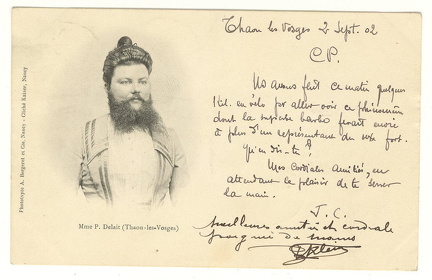 Thaon les Vosges 2 Sept. 02
C.P.
Nous avons fait ce matin quelques
Kil. en vélo pr aller voir ce phénomène
dont la superbe barbe ferait envie
à plus d'un représentant du sexe fort.
Qu'en dis-tu ?
Mes cordiales amitiés, en
attendant le plaisir de te serrer
la main.
J. C.
Meilleures amitiés et cordiale
poignée de mains
Mme P. Delait (Thaon-les-Vosges)
Phototypie A. Bergeret et Cie, Nancy - Cliché
Nancy